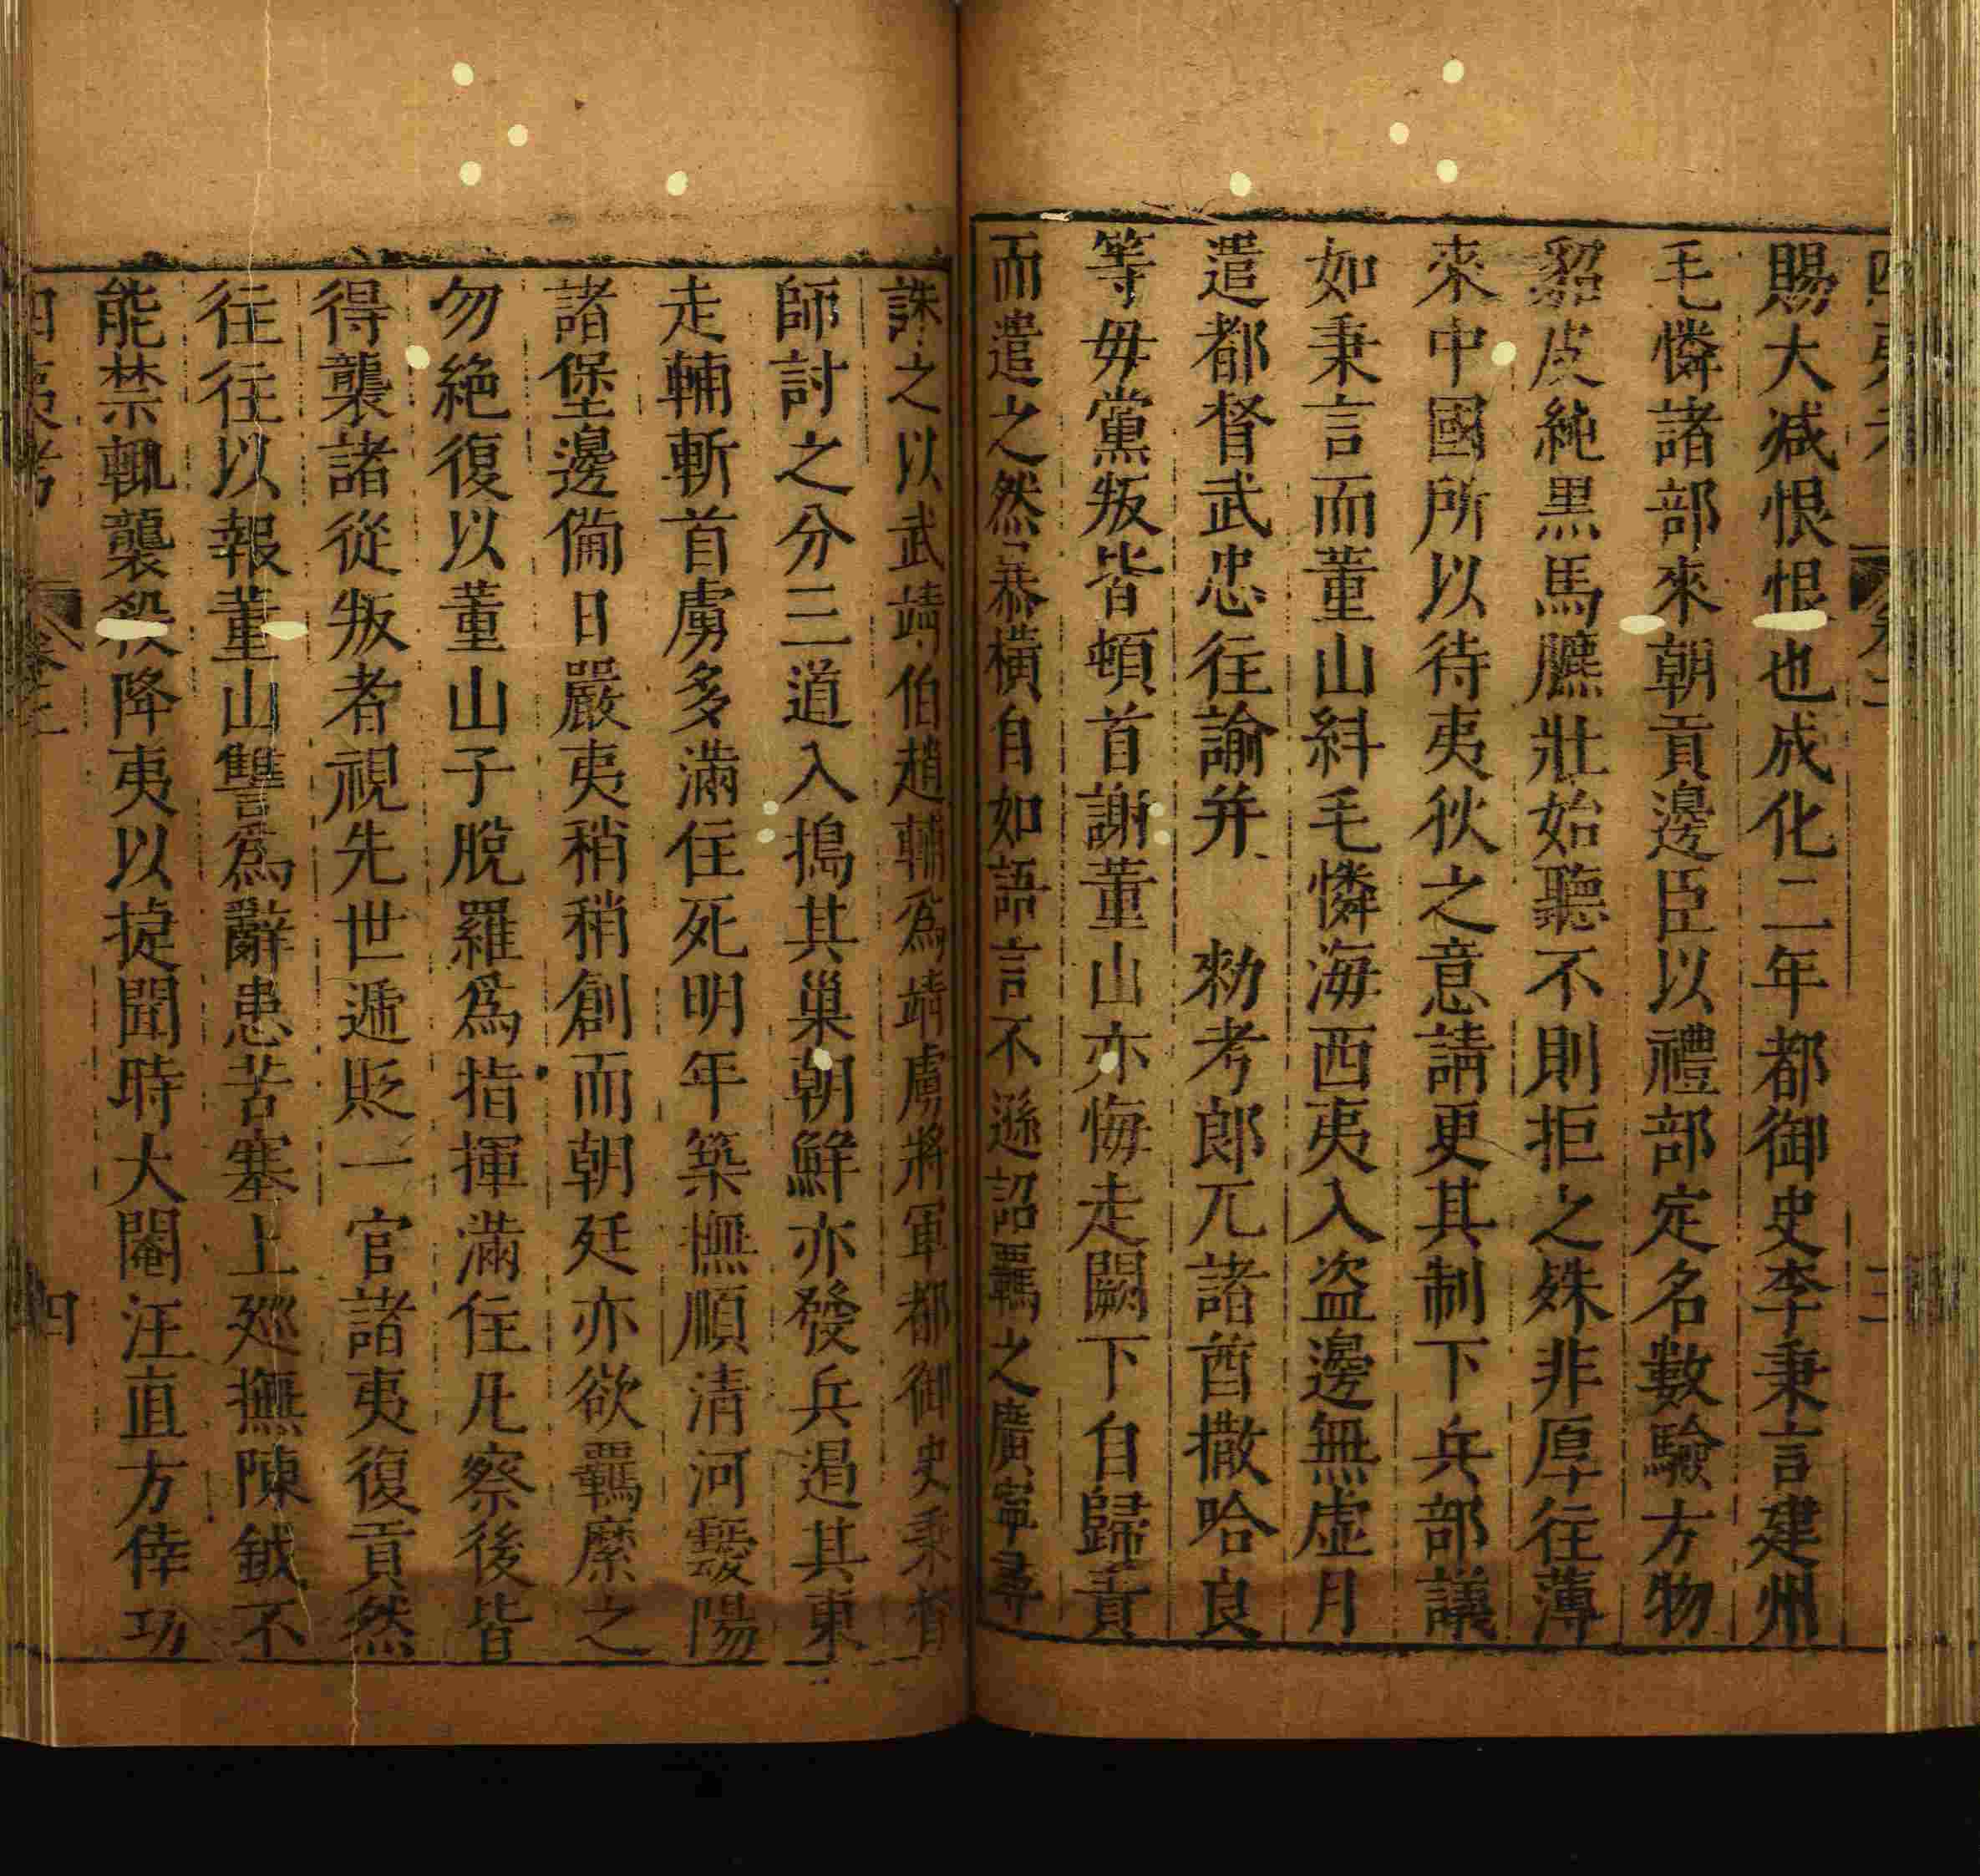 賜大减恨恨也成化二年都御史李秉言建州
毛憐諸部來朝貢邊臣以禮部定名數驗方物
貂皮純黒馬臕壯始聽不則拒之殊非厚徃薄
來中國所以待夷狄之意請更其制下兵部議
如秉言而董山糾毛憐海西夷入盗邊無虚月
遣都督武忠徃諭并　勑考郎兀諸酋撒哈良
等毋黨叛皆頓首謝董山亦悔走闕下自歸責
而遣之然暴横自如語言不遜詔覊之廣寧尋
誅之以武靖伯趙輔爲靖虜將軍都御史秉督
師討之分三道入搗其巢朝鮮亦發兵遏其東
走輔斬首虜多滿住死明年築撫順清河靉陽
諸堡邊備日嚴夷稍稍創而朝廷亦欲覊縻之
勿絶復以董山子脫羅爲指揮滿住凡察後皆
得襲諸從叛者視先世遞貶一官諸夷復貢然
徃徃以報董山讐爲辭患苦塞上廵撫陳鉞不
能禁輒襲殺降夷以捷聞時大閹汪直方倖功
四夷考
卷之二
四